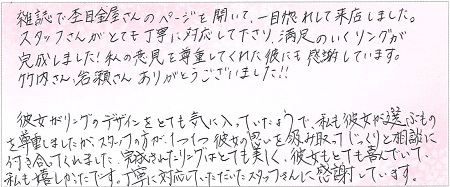 雑誌で杢目金屋さんのページを開いて、一目惚れして来店しました。
スタッフさんがとても丁寧に対応して下さり、満足のいくリングが
完成しました!私の意見を尊重してくれた彼にも感謝しています。
竹内さん、名瀬さん ありがとうございました!!
彼女がリングのデザインをとても気に入っていたようで、私も彼女が選ぶもの
を尊重しましたが、スタッフの方が、1つ1つ彼女の思いを汲み取ってじっくりと相談に
付き合ってくれました。完成されたリングはとても美しく、彼女もとても喜んでいて、
私も嬉しかったです。丁寧に対応していただいたスタッフさんに感謝しています。